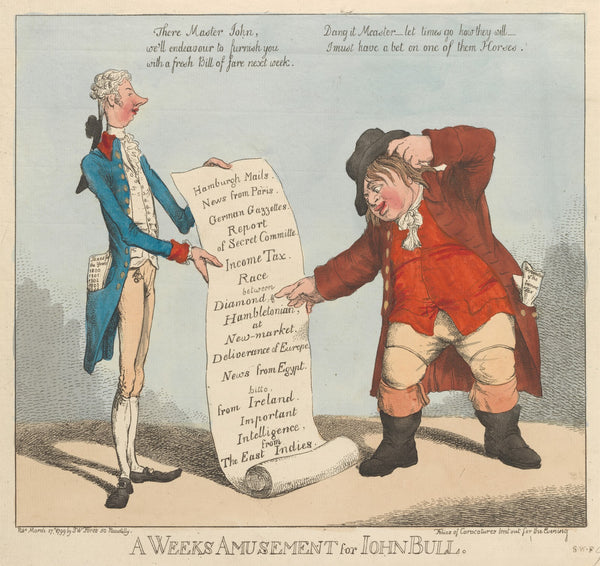 There Master Iohn,
we'll endeavour to furnish you
with a fresh Bill of fare next week.
Dang it Measter — let times go how they will —
I must have a bet on one of them Horses.
Hamburgh Mails.
News from Paris.
German Gazzettes.
Report
of Secret Committe
Income Tax.
Race
between
Diamond &
Hambletonian,
at
New-market.
Deliverance of Europe
News from Egypt.
ditto
from Ireland.
Important
Intelligence,
from
The East Indies.
for
the Years
1800
1801
Pub.d March 17th 1799 by S W Fores 50 Piccadilly.
Folios of Caracatures lent out for the Evening
A WEEKS AMUSEMENT for IOHN BULL.